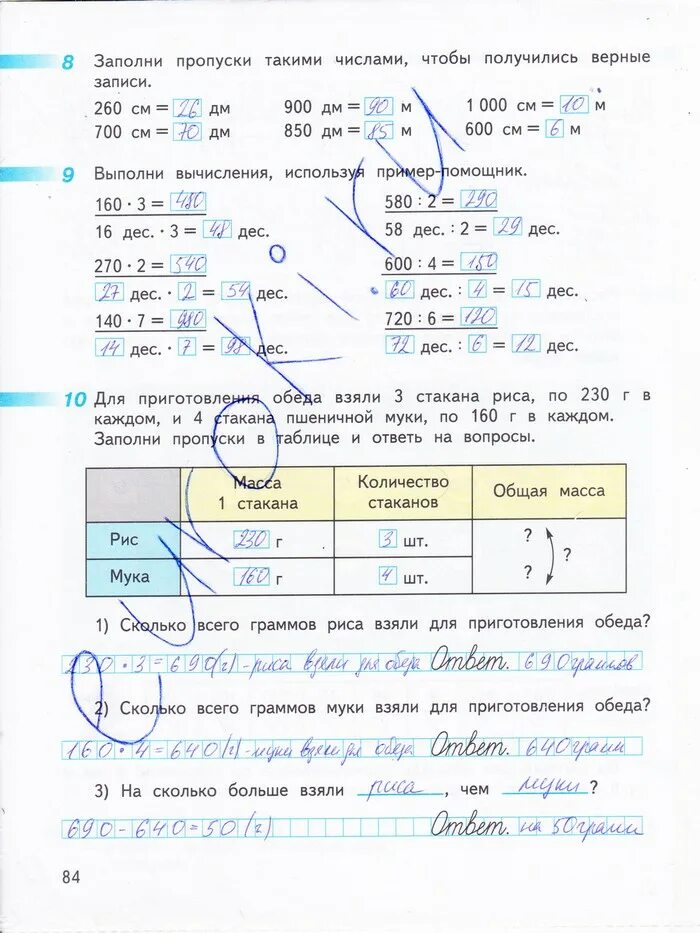 8 Заполни пропуски такими числами, чтобы получились верные
записи.
260 см = 26 дм 900 дм = 90 м 1 000 см = 10 м
700 см = 70 дм 850 дм = 85 м 600 см = 6 м
9 Выполни вычисления, используя пример-помощник.
160 · 3 = 480 580 : 2 = 290
16 дес. · 3 = 48 дес. 58 дес. : 2 = 29 дес.
270 · 2 = 540 600 : 4 = 150
27 дес. · 2 = 54 дес. 60 дес. : 4 = 15 дес.
140 · 7 = 980 720 : 6 = 120
14 дес. · 7 = 98 дес. 72 дес. : 6 = 12 дес.
10 Для приготовления обеда взяли 3 стакана риса, по 230 г в
каждом, и 4 стакана пшеничной муки, по 160 г в каждом.
Заполни пропуски в таблице и ответь на вопросы.
Масса Количество Общая масса
1 стакана стаканов
Рис 230 г 3 шт. ?
?
Мука 160 г 4 шт. ?
1) Сколько всего граммов риса взяли для приготовления обеда?
230 · 3 = 690 (г) - риса взяли для обеда Ответ. 690 граммов
2) Сколько всего граммов муки взяли для приготовления обеда?
160 · 4 = 640 (г) - муки взяли для обеда Ответ. 640 грамм
3) На сколько больше взяли риса, чем муки?
690 - 640 = 50 (г) Ответ. на 50 грамм
84